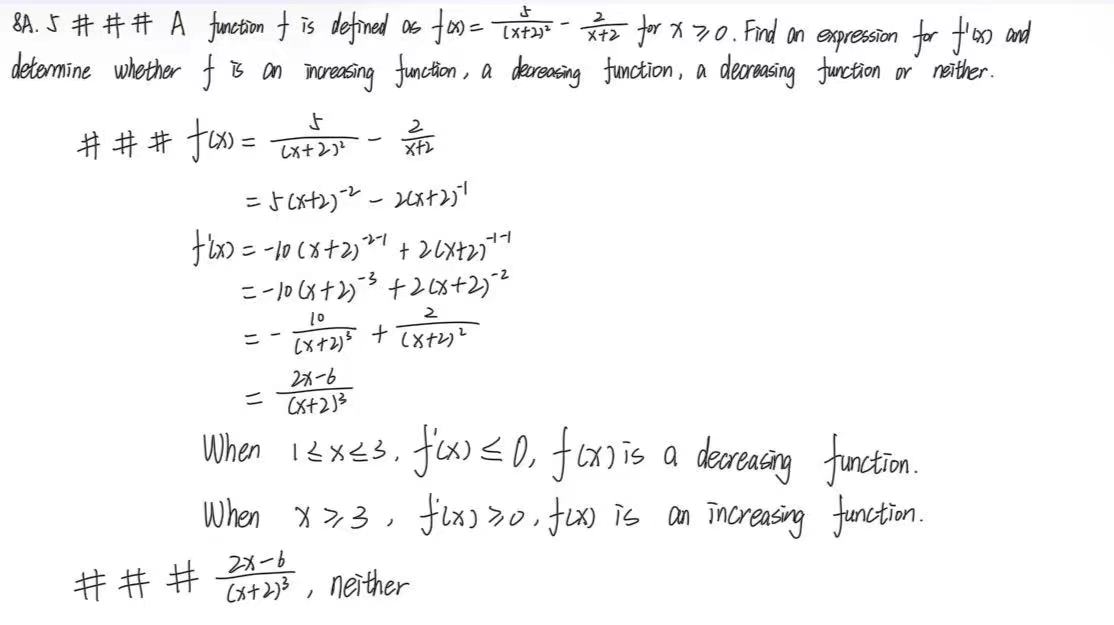 8A.5 # # # A function f is defined as f(x) = 5/(x+2)² - 2/(x+2) for x ≥ 0. Find an expression for f'(x) and
determine whether f is an increasing function, a decreasing function, a decreasing function or neither.
# # # f(x) = 5/(x+2)² - 2/(x+2)
= 5(x+2)⁻² - 2(x+2)⁻¹
f'(x) = -10(x+2)⁻²⁻¹ + 2(x+2)⁻¹⁻¹
= -10(x+2)⁻³ + 2(x+2)⁻²
= - 10/(x+2)³ + 2/(x+2)²
= (2x-6)/(x+2)³
When 1 ≤ x ≤ 3, f'(x) ≤ 0, f(x) is a decreasing function.
When x ≥ 3, f'(x) ≥ 0, f(x) is an increasing function.
# # # (2x-6)/(x+2)³, neither